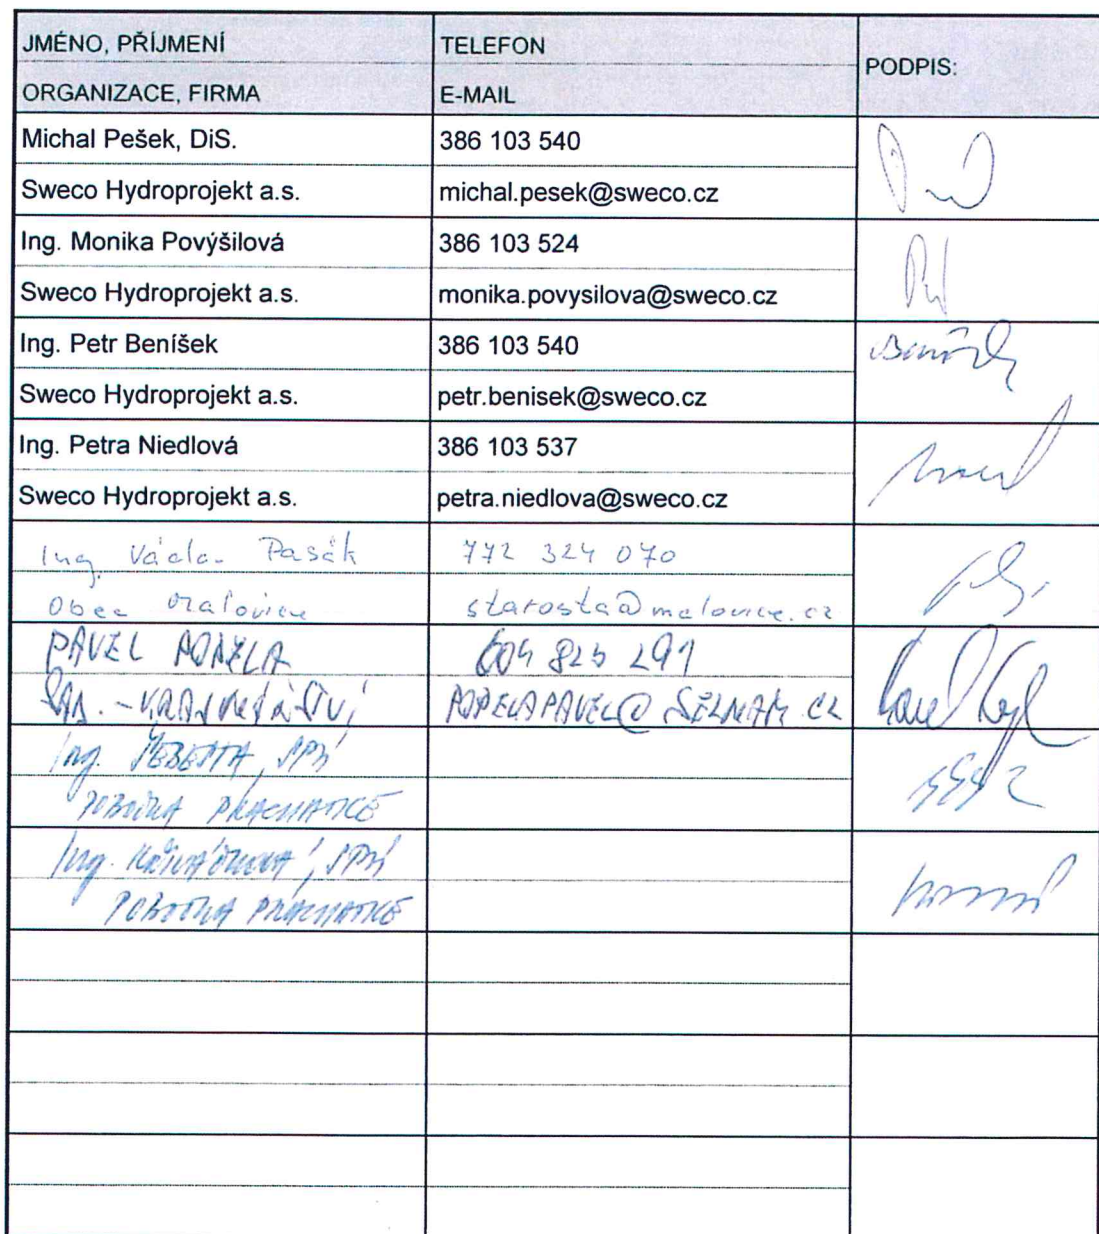 JMÉNO, PŘÍJMENÍ TELEFON
PODPIS:
ORGANIZACE, FIRMA E-MAIL
Michal Pešek, DiS. 386 103 540
Sweco Hydroprojekt a.s. michal.pesek@sweco.cz
Ing. Monika Povýšilová 386 103 524
Sweco Hydroprojekt a.s. monika.povysilova@sweco.cz
Ing. Petr Beníšek 386 103 540
Sweco Hydroprojekt a.s. petr.benisek@sweco.cz
Ing. Petra Niedlová 386 103 537
Sweco Hydroprojekt a.s. petra.niedlova@sweco.cz
Ing. Václav Pasák 772 324 070
Obec Malovice starosta@malovice.cz
PAVEL POPELA 604 825 291
POPELAPAVEL@SEZNAM.CZ
Ing. ŠEBESTA, SPÚ
POBOČKA PRACHATICE
Ing. SPÚ
POBOČKA PRACHATICE